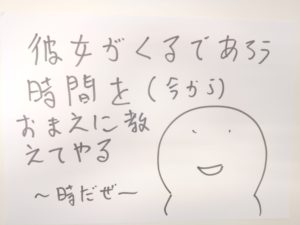 彼女がくるであろう
時間を(今から)
おまえに教
えてやる
～時だぜー